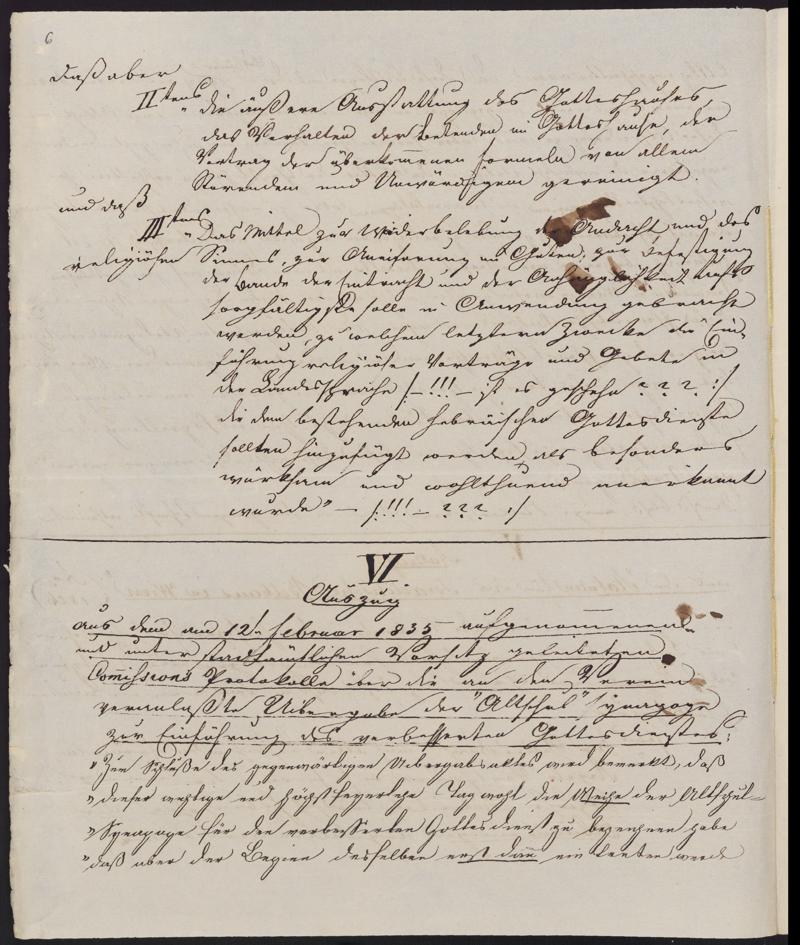 6
daß aber
II tens die äußere Ausstattung des Gotteshauses,
das Verhalten der Betenden im Gotteshause, der
Vortrag der überkommenen Formeln von allem
Störendem und Unwürdigem gereinigt.
und daß
III tens „Das Mittel zur Wiederbelebung der Andacht und des
religiösen Sinnes, zur Aneiferung im Guten, zur Befestigung
der Bande der Eintracht und der Anhänglichkeit aufs
sorgfältigste solle in Anwendung gebracht
werden, zu welchem letztern Zwecke die Ein-
führung religiöser Vorträge und Gebete in
der Landessprache /: – !!! – ist es geschehn ? ? ? :/
die dem bestehenden hebräischen Gottesdienste
sollten hinzufügt werden, als besonders
würksam und wohlthuend anerkannt
wurde" – /: !!! – ? ? ? :/
VI
Auszug
aus dem am 12t. Februar 1835 aufgenommenen
und unter stadtämtlichen Vorsitz geleiteten
Comissions Protokolle über die an den Verein
veranlaßte Uibergabe der "Altschul" Synagoge
zur Einführung des verbesserten Gottesdienstes:
„Zum Schluße des gegenwärtigen Uibergabsaktes wird bemerkt, daß
„dieser wichtige und höchstfeyerliche Tag wohl die Weihe der Altschul-
„Synagoge für den verbesserten Gottesdienst zu bezeichnen habe
„daß aber der Beginn desselben erst dann eintreten werde